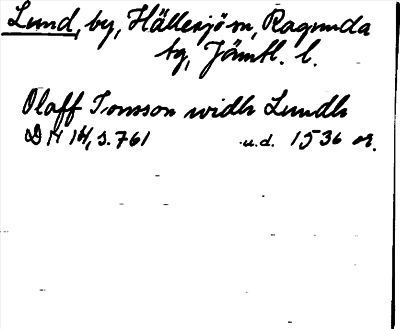 Lund, by, Hällesjö sn, Ragunda
tg, Jämtl. l.
Olaff Jonsson widh Lundh
DN 14, s. 761 u.d. 1536 or.